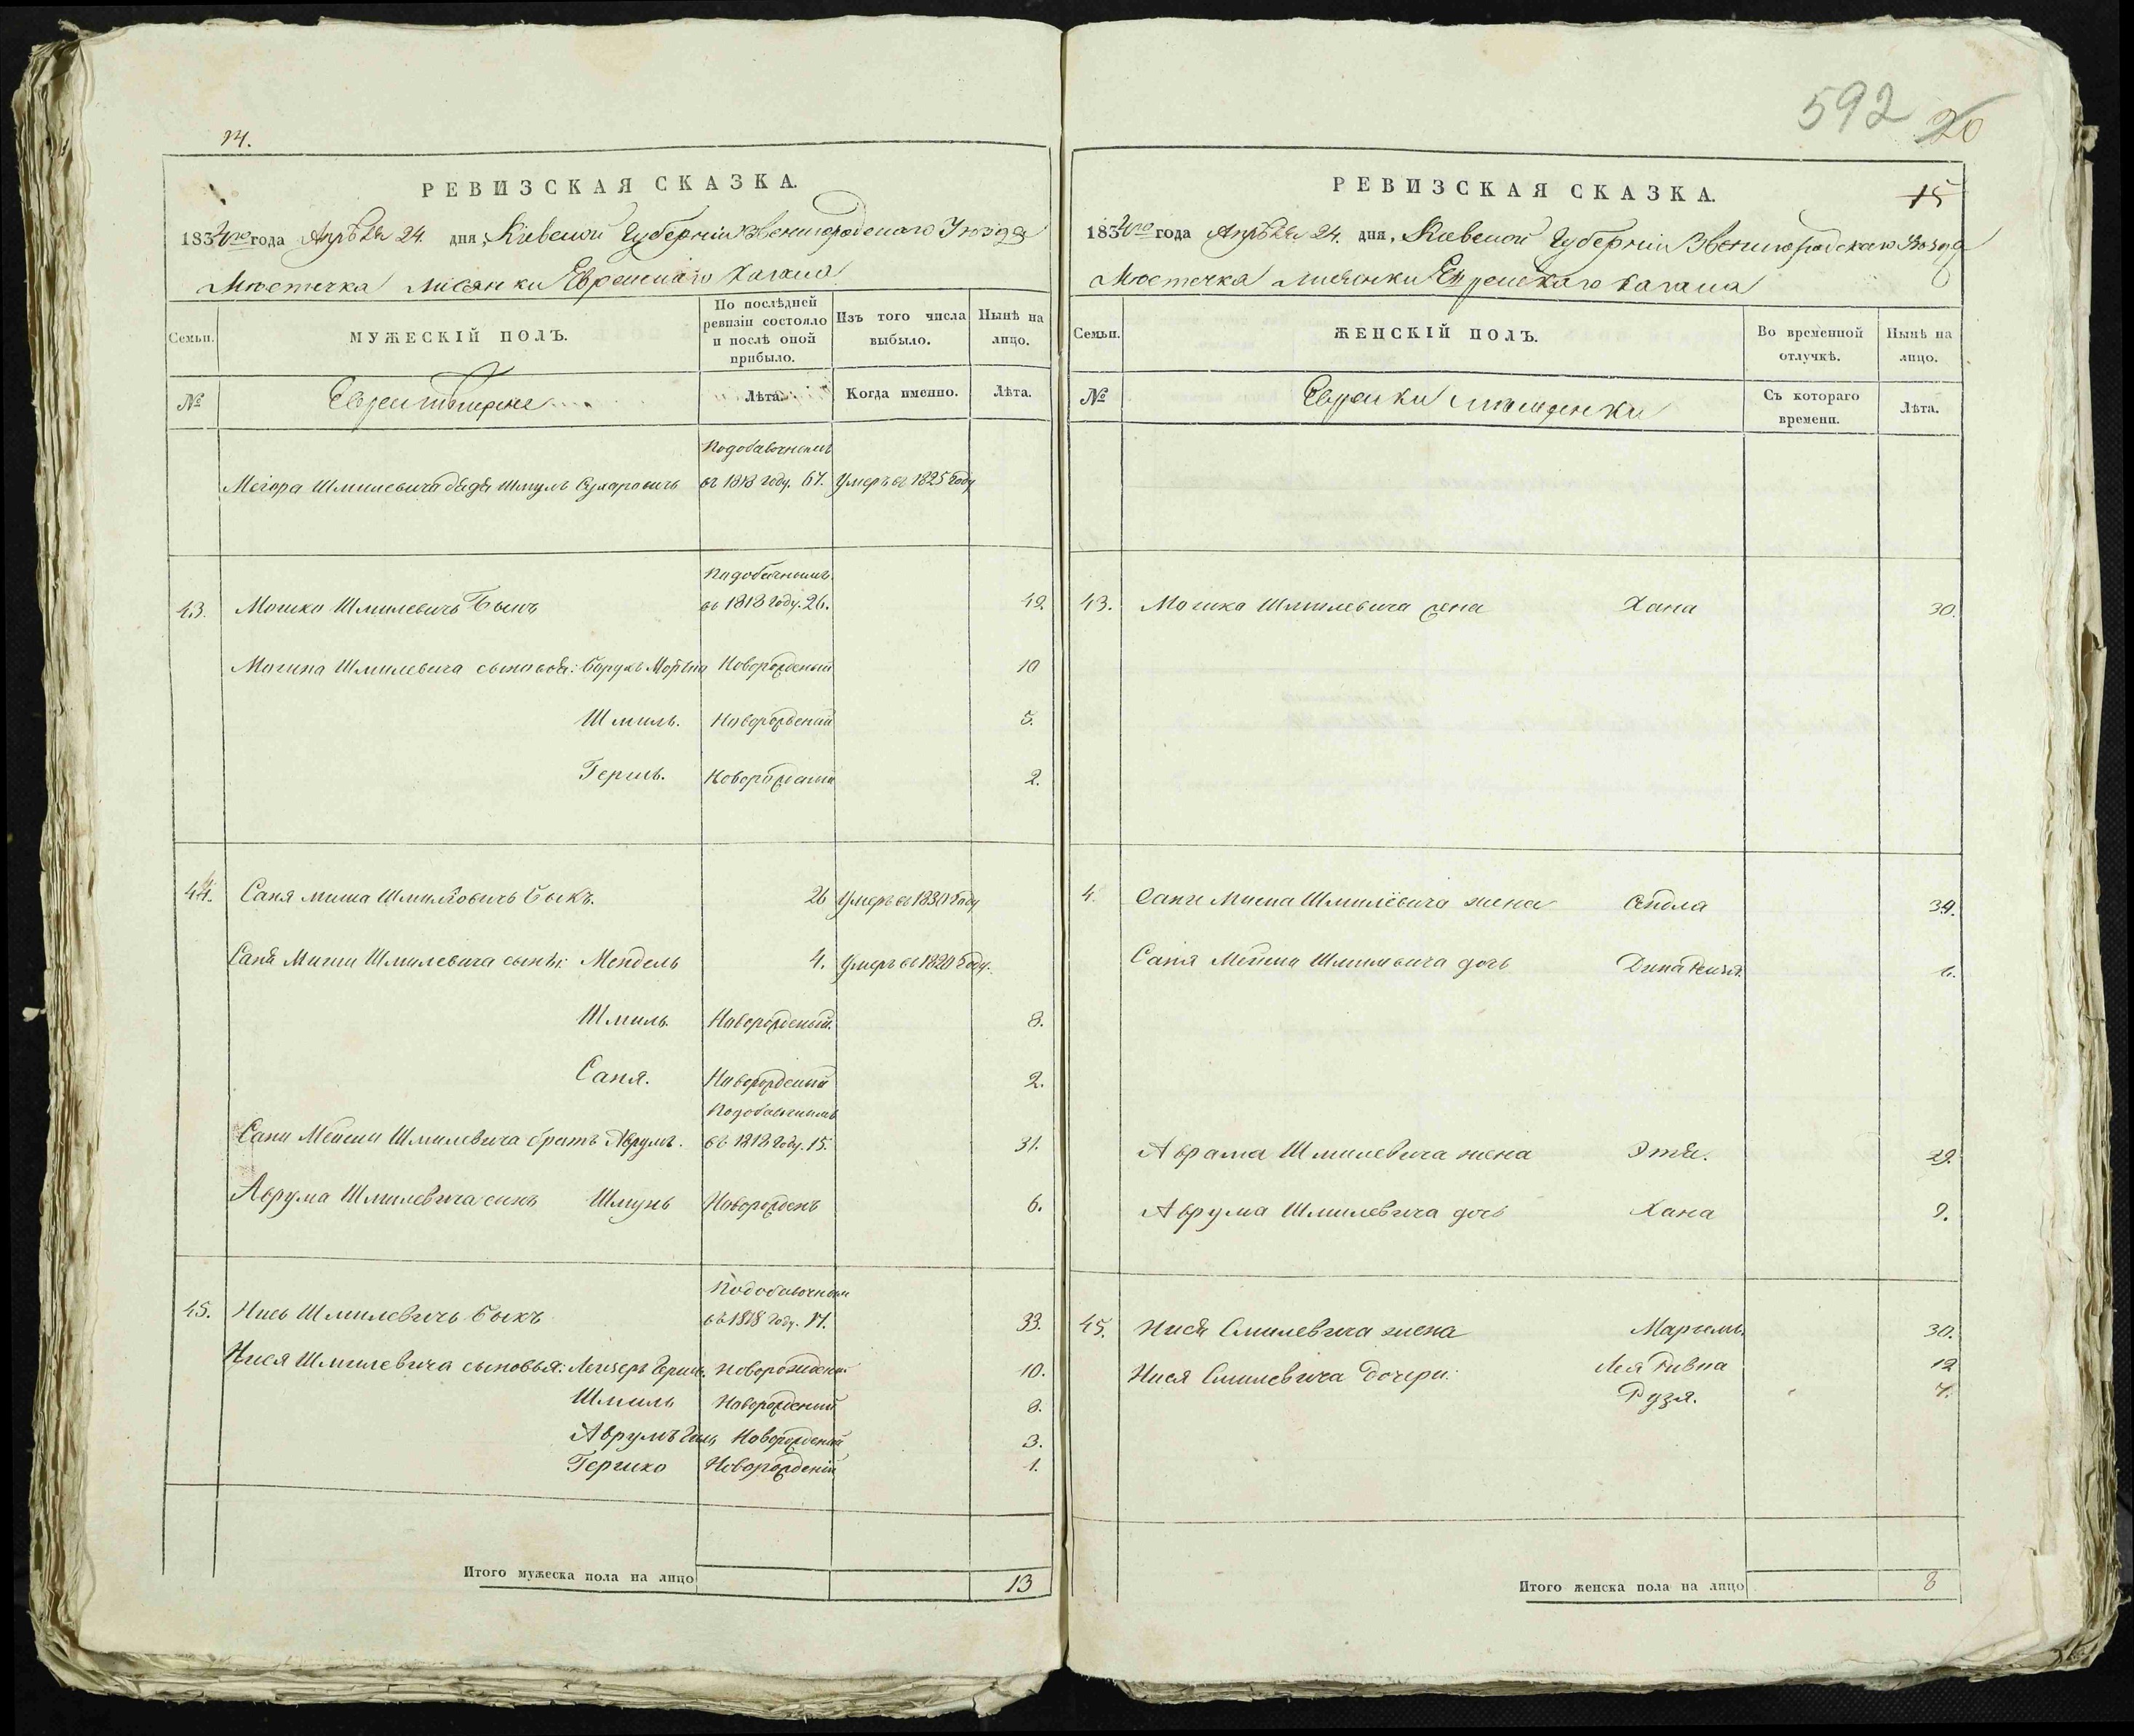 14.
РЕВИЗСКАЯ СКАЗКА.
1834го года Апрѣля 24. дня, Кіевской Губерніи Звенигородскаго Уѣзда
Мѣстечка Лисянки Еврейскаго Кагала
Семьи.
МУЖЕСКІЙ ПОЛЪ.
По послѣдней ревизіи состояло и послѣ оной прибыло.
Изъ того числа выбыло.
Нынѣ на лицо.
№
Евреи мѣщане
Лѣта.
Когда именно.
Лѣта.
Подобавочнымъ
Шмилевича дядя Шмуль въ 1818 году. 67. Умеръ въ 1825 году
въ 1818 году. 26.
43. Мошко Шмилевичъ Быкъ 42.
Мошка Шмилевича сыновья: Борухъ Новорожденный 10
Шмиль. Новорожденный 5.
Гершъ. Новорожденный 2.
44. Саня Шмилевичъ Быкъ. 26 Умеръ въ 1830 году
Шмилевича сынъ: Мендель 4. Умеръ въ 1820 году.
Шмиль. Новорожденный. 8.
Саня. Новорожденный 2.
Подобавочнымъ
Шмилевича братъ Аврумъ. въ 1818 году. 15. 31.
Аврума Шмилевича сынъ Шмунь Новорожденъ 6.
Подобавочным
45. Нись Шмилевичъ Быкъ въ 1818 году. 17. 33.
Нися Шмилевича сыновья: Лейзеръ Герш. Новорожден. 10.
Шмиль Новорожденый 8.
Аврумъ Новорожденый 3.
Гершко Новорожденій 1.
Итого мужеска пола на лицо 13
592 20
РЕВИЗСКАЯ СКАЗКА.
15
1834го года Апрѣля 24. дня, Кіевской Губерніи Звенигородскаго Уѣзда
Мѣстечка Лисянки Еврейскаго Кагала
Семьи.
ЖЕНСКІЙ ПОЛЪ.
Во временной отлучкѣ.
Нынѣ на лицо.
№
Еврейки мѣщанки
Съ котораго времени.
Лѣта.
43. Мошка Шмилевича жена Хана 30.
4. Шмилевича жена 34.
Шмилевича дочь 6.
Аврама Шмилевича жена Этя. 29.
Аврума Шмилевича дочь Хана 9.
45. Нися Смилевича жена Марьемъ. 30.
Нися Смилевича дочери: Лея Ривка 12
Рузя. 7.
Итого женска пола на лицо 8